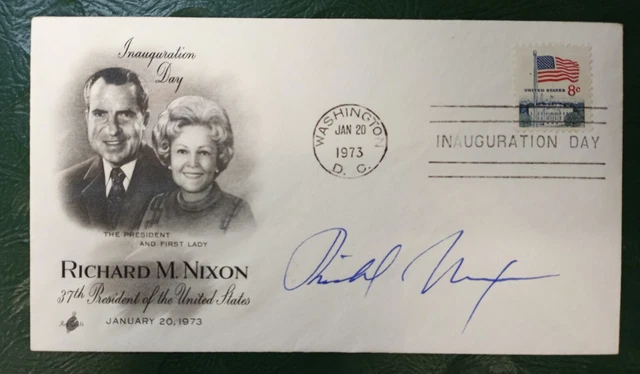 Inauguration
Day
THE PRESIDENT
AND FIRST LADY
RICHARD M. NIXON
37th President of the United States
JANUARY 20, 1973
WASHINGTON
JAN 20
1973
D. C.
UNITED STATES 8c
INAUGURATION DAY
Richard Nixon